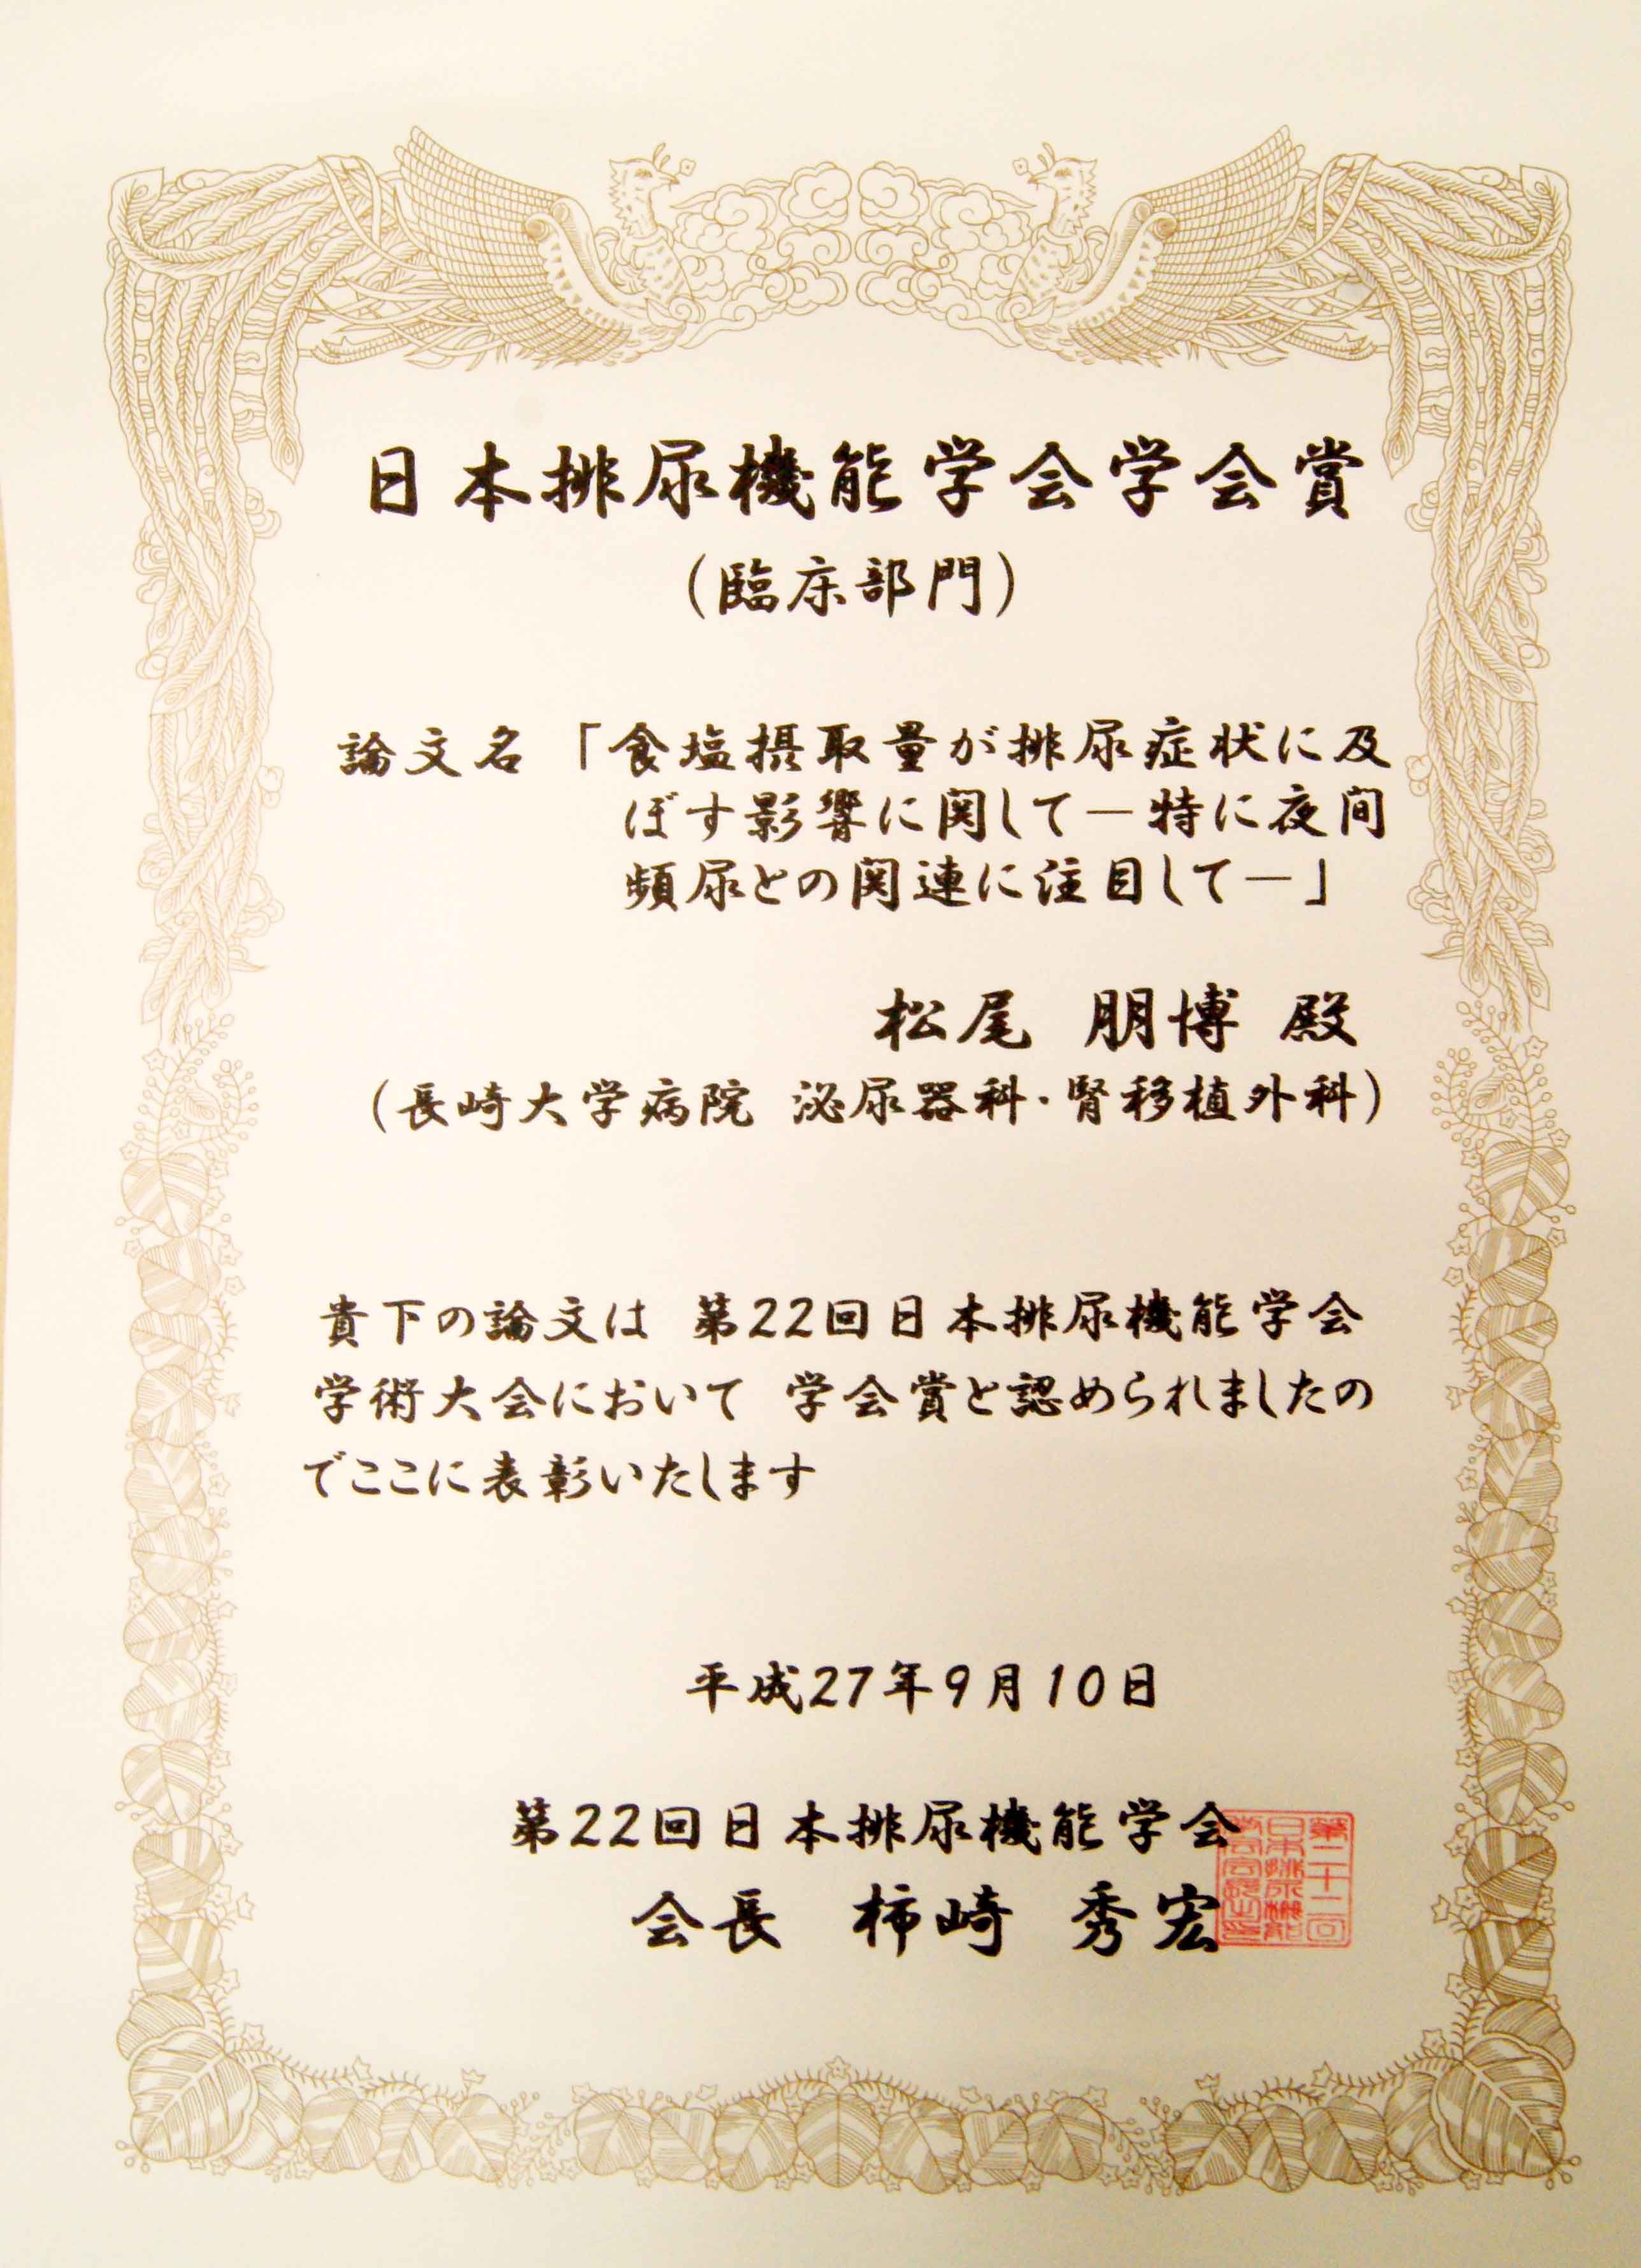 日本排尿機能学会学会賞
（臨床部門）
論文名「食塩摂取量が排尿症状に及
ぼす影響に関して－特に夜間
頻尿との関連に注目して－」
松尾 朋博 殿
（長崎大学病院 泌尿器科・腎移植外科）
貴下の論文は 第22回日本排尿機能学会
学術大会において 学会賞と認められましたの
でここに表彰いたします
平成27年9月10日
第22回日本排尿機能学会
会長 柿崎 秀宏
第二十二回
日本排尿機能
学会会長之印